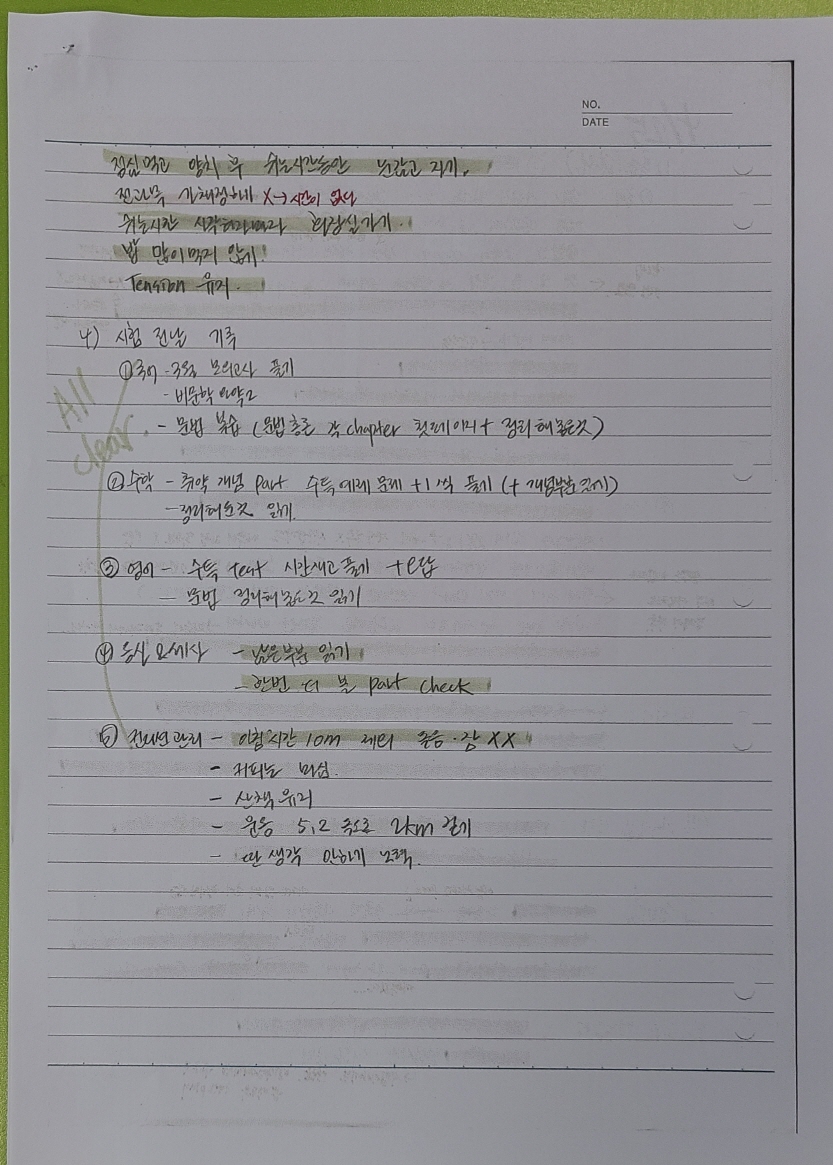 NO.
DATE
점심먹고 양치 후 쉬는시간동안 눈감고 자기.
전과목 가채점하기 X → 시간이 없다
쉬는시간 시작하자마자 화장실가기.
밥 많이먹지 않기!
Tension 유지.
4) 시험 전날 기록
① 국어 - 모의고사 풀기
- 비문학 요약2
- 문법 복습 (문법총론 각 chapter 첫페이지 + 정리해놓은것)
All
clear.
② 수학 - 취약 개념 part 수특 예제 문제 +1씩 풀기 (+ 개념부분 읽기)
- 정리해논것 읽기.
③ 영어 - 수특 test 시간재고 풀기 + 오답
- 문법 정리해놓은것 읽기
④ 동실 모세사 - 남은부분 읽기
- 한번 더 볼 part check
⑤ 컨디션 관리 - 아침시간 10m 제외 졸음·잠 XX
- 커피는 마심.
- 산책 유지
- 운동 5.2 속도로 2km 걷기
- 딴 생각 안하기 노력.